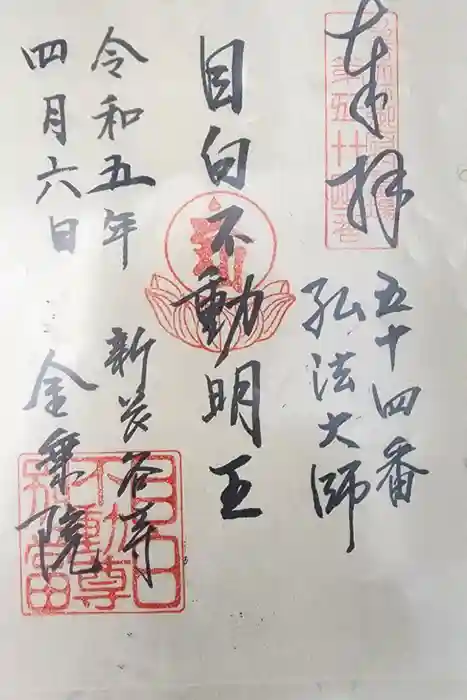 奉拝
五十四番
弘法大師
目白不動明王
令和五年
四月六日
新長谷寺
金乗院